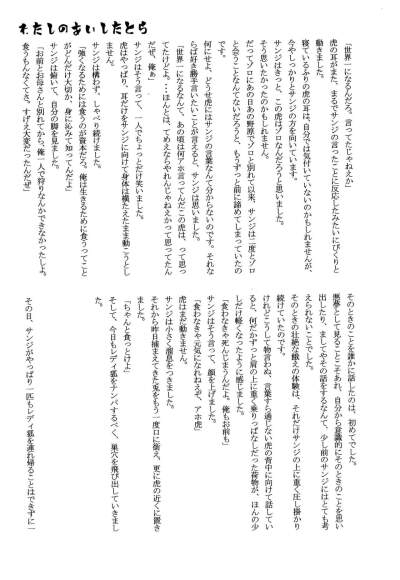 わたしのあいしたとら
「世界一になるんだろ。言ってたじゃねえか」
虎の耳がまた、まるでサンジの言ったことに反応したみたいにぴくりと
動きました。
寝ているふりの虎の耳は、自分では気付いていないのかもしれませんが、
今やしっかりとサンジの方を向いています。
サンジはきっと、この虎はゾロなんだろうと思いました。
そう思いたかったのかもしれません。
だってゾロにあの日あの野原でゾロと別れて以来、サンジは二度とゾロ
と会うことなんてないだろうと、もうずっと前に諦めてしまっていたの
です。
何にせよ、どうせ虎にはサンジの言葉なんて分からないのです。それな
らば好き勝手言いたいことが言えると、サンジは思いました。
「世界一になるなんて、あの頃は何アホ言ってんだこの虎は、って思っ
てたけどよ。…ほんとは、てめえならやれんじゃねえかって思ってたん
だぜ、俺ぁ」
サンジはそう言って、一人でちょっとだけ笑いました。
虎はやっぱり、耳だけをサンジに向けて身体は横たえたまま動こうとし
ません。
サンジは構わず、しゃべり続けました。
「強くなるためには食うのが資本だろ。俺は生きるために食うってこと
がどんだけ大切か、身に沁みて知ってんだよ」
サンジは俯いて、自分の脚を見ました。
「お前とお母さんと別れてから、俺一人で狩りなんかできなかったしよ。
食うもんなくてさ、すげえ大変だったんだぜ」
そのときのことを誰かに話したのは、初めてでした。
悪夢として見ることこそあれ、自分から意識的にそのときのことを思い
出したり、ましてやその話をするなんて、少し前のサンジにはとても考
えられないことでした。
そのときの壮絶な餓えの体験は、それだけサンジの上に重く圧し掛かり
続けていたのです。
けれどこうして物言わぬ、言葉すら通じない虎の背中に向けて話してい
ると、何だかずっと肩の上に重く乗りっぱなしだった荷物が、ほんの少
しだけ軽くなったように感じました。
「食わなきゃ死んでしまうんだよ。俺もお前も」
サンジはそう言って、顔を上げました。
「食わなきゃ元気になれねえぞ、アホ虎」
虎はまだ動きません。
サンジは小さく溜息をつきました。
それから昨日捕まえてきた兎をもう一度口に銜え、更に虎の近くに置き
ました。
「ちゃんと食っとけよ」
そして、今日もレディ狐をナンパするべく、巣穴を飛び出していきまし
た。
その日、サンジがやっぱり一匹もレディ狐を連れ帰ることはできずに一